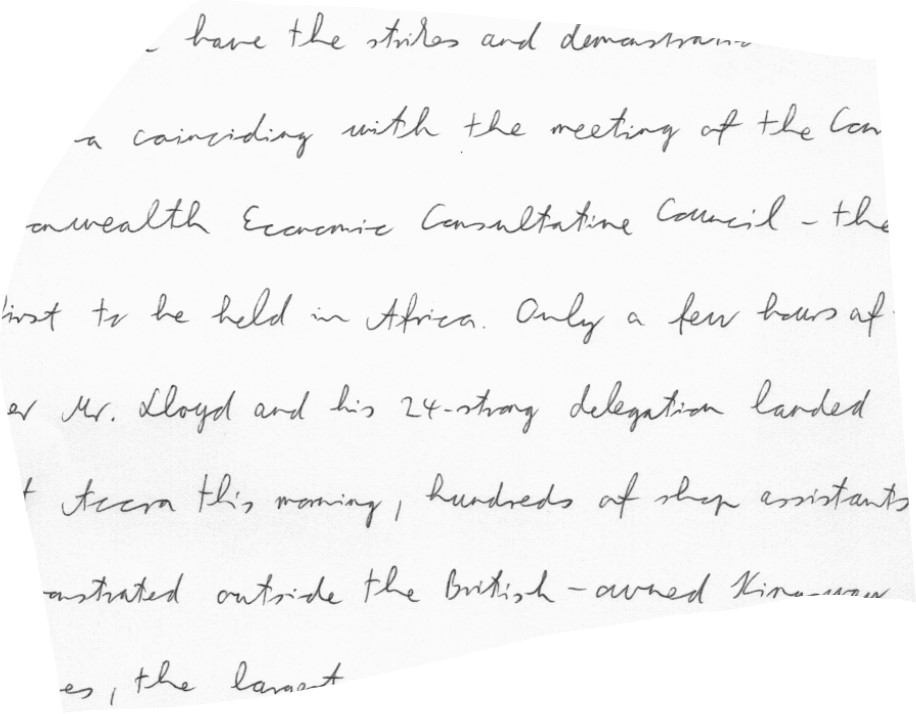 have the strikes and
coinciding with the meeting of the
Economic Consultative Council - the
to be held in Africa. Only a few hours
Mr. Lloyd and his 24-strong delegation landed
Accra this morning, hundreds of shop assistants
outside the British-owned
, the largest